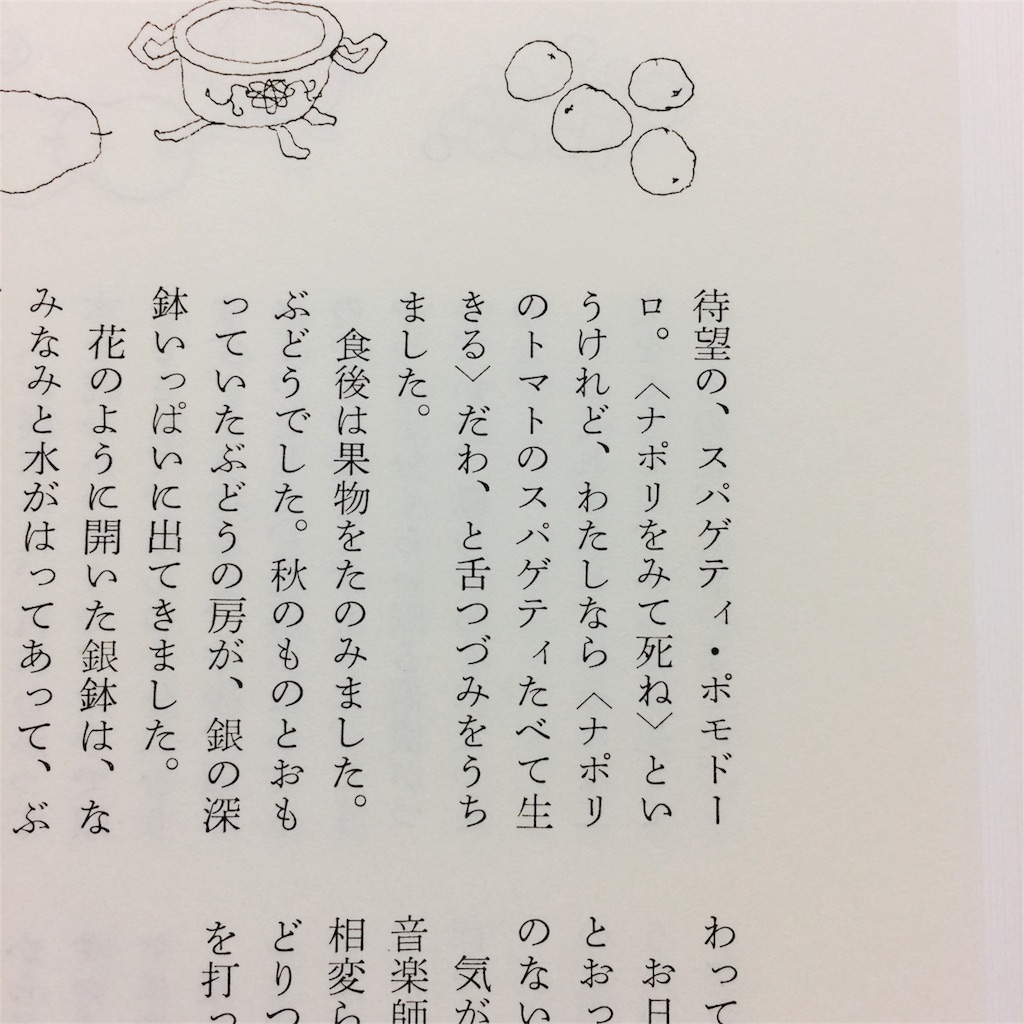 待望の、スパゲティ・ポモドー
ロ。〈ナポリをみて死ね〉とい
うけれど、わたしなら〈ナポリ
のトマトのスパゲティたべて生
きる〉だわ、と舌つづみをうち
ました。
食後は果物をたのみました。
ぶどうでした。秋のものとおも
っていたぶどうの房が、銀の深
鉢いっぱいに出てきました。
花のように開いた銀鉢は、な
みなみと水がはってあって、ぶ
わって
お日
とおっ
のない
気が
音楽師
相変ら
どりつ
を打っ